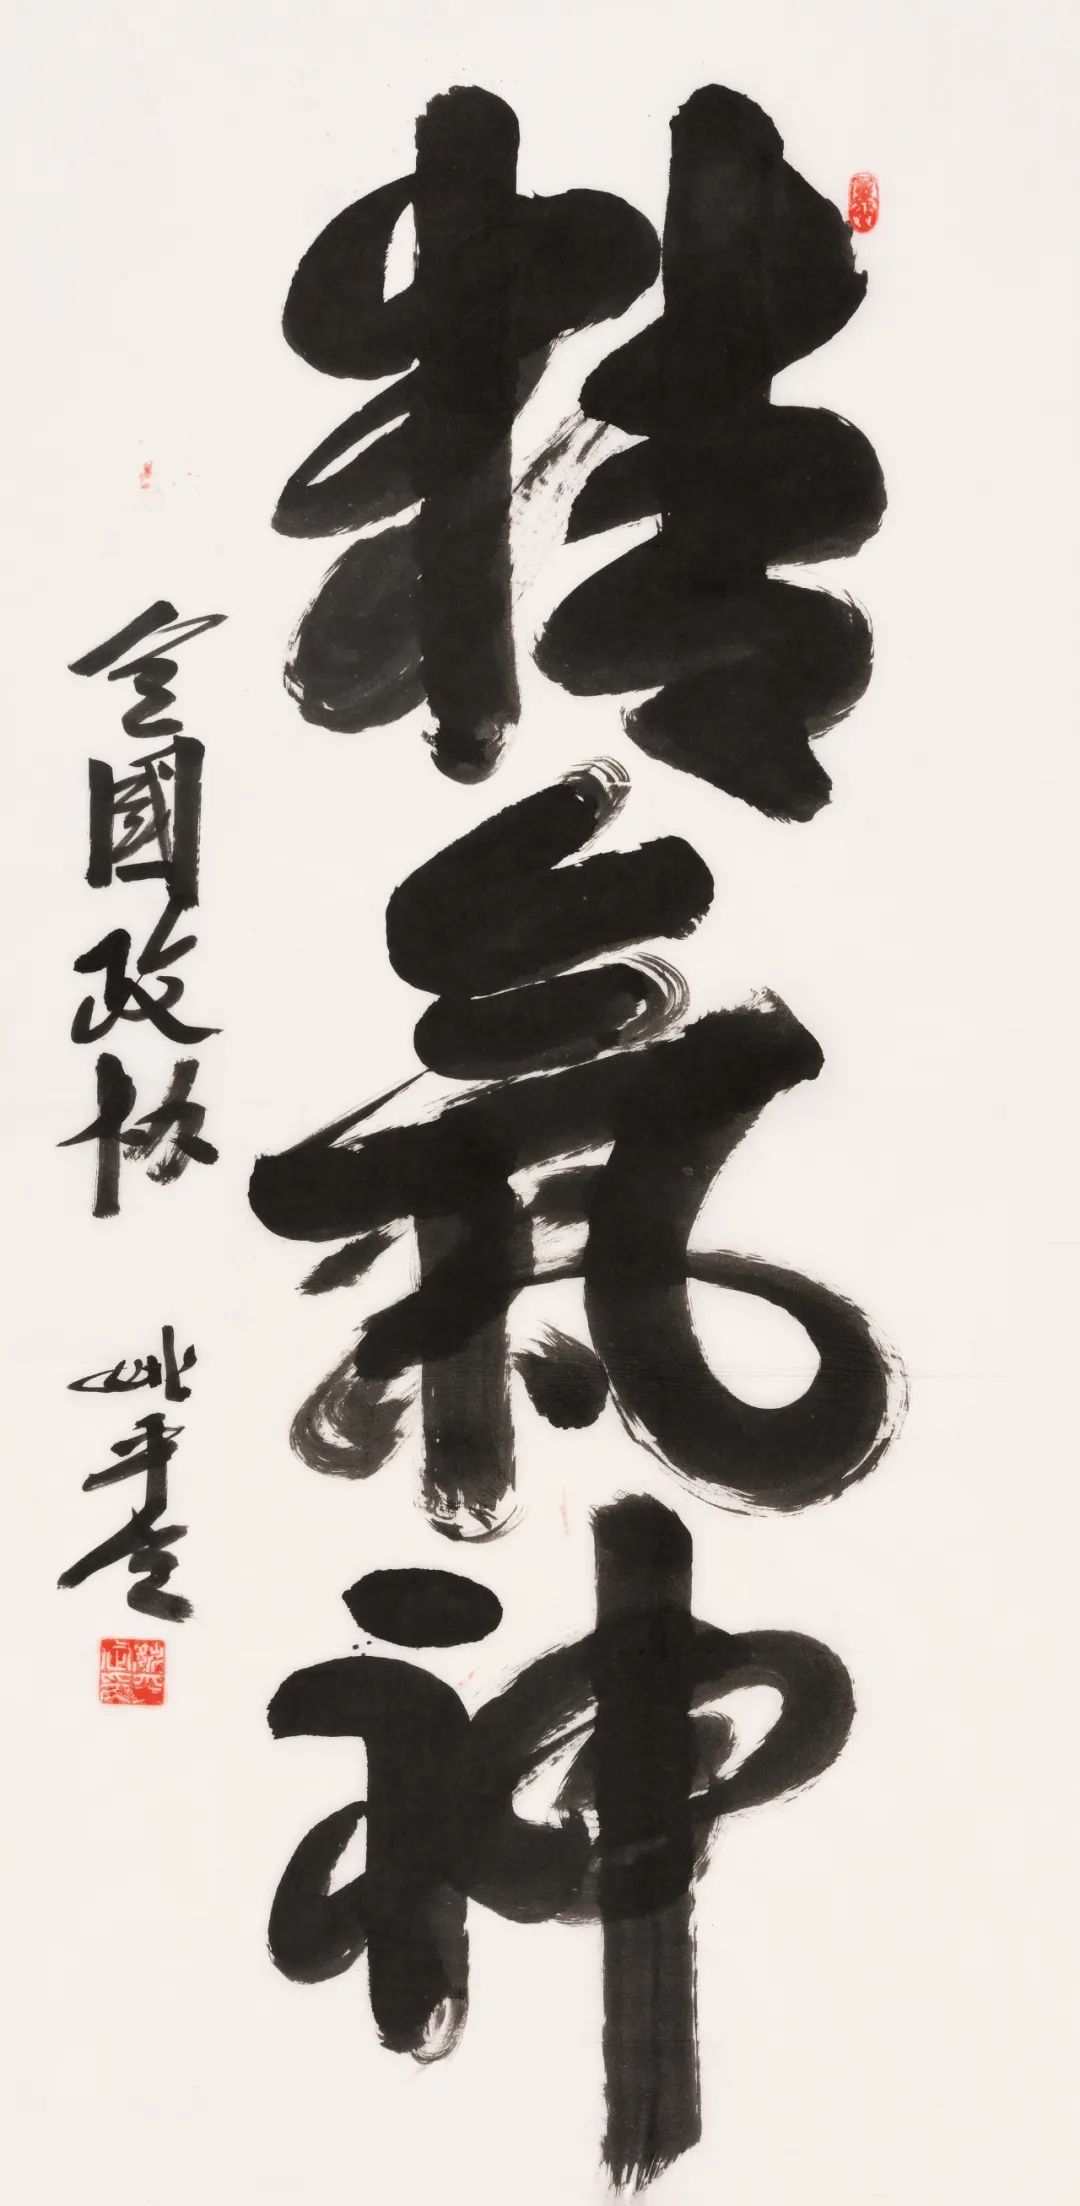 精氣神
全國政協 姚平